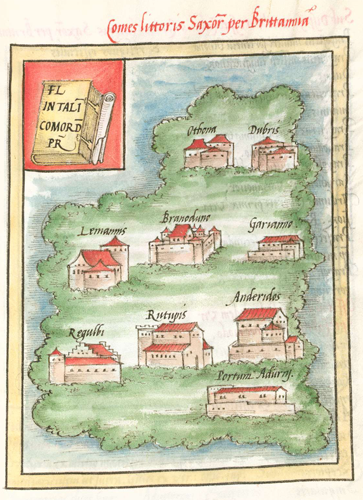 Comes littoris Saxor̄ per Brittaniā
FL
INTALI
COMORD̄
PR
Othona Dubris
Lemannis Branoduno Garianno
Regulbi Rutupis Anderidos
Portum Adurni